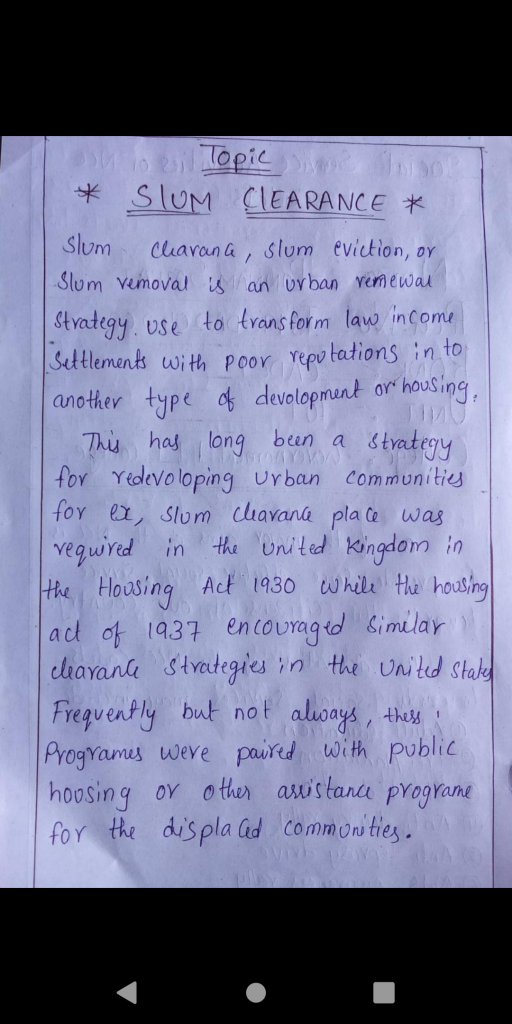 Topic
* SlUM ClEARANCE *
Slum clearance, slum eviction, or
Slum removal is an urban renewal
strategy use to transform law income
Settlements with poor reputations in to
another type of devolopment or housing.
This has long been a strategy
for redevoloping urban communities
for ex, slum clearance place was
required in the United Kingdom in
the Housing Act 1930 while the housing
act of 1937 encouraged similar
clearance strategies in the United States
Frequently but not always, thess
Programes were paired with public
housing or other assistance programe
for the displaced communities.